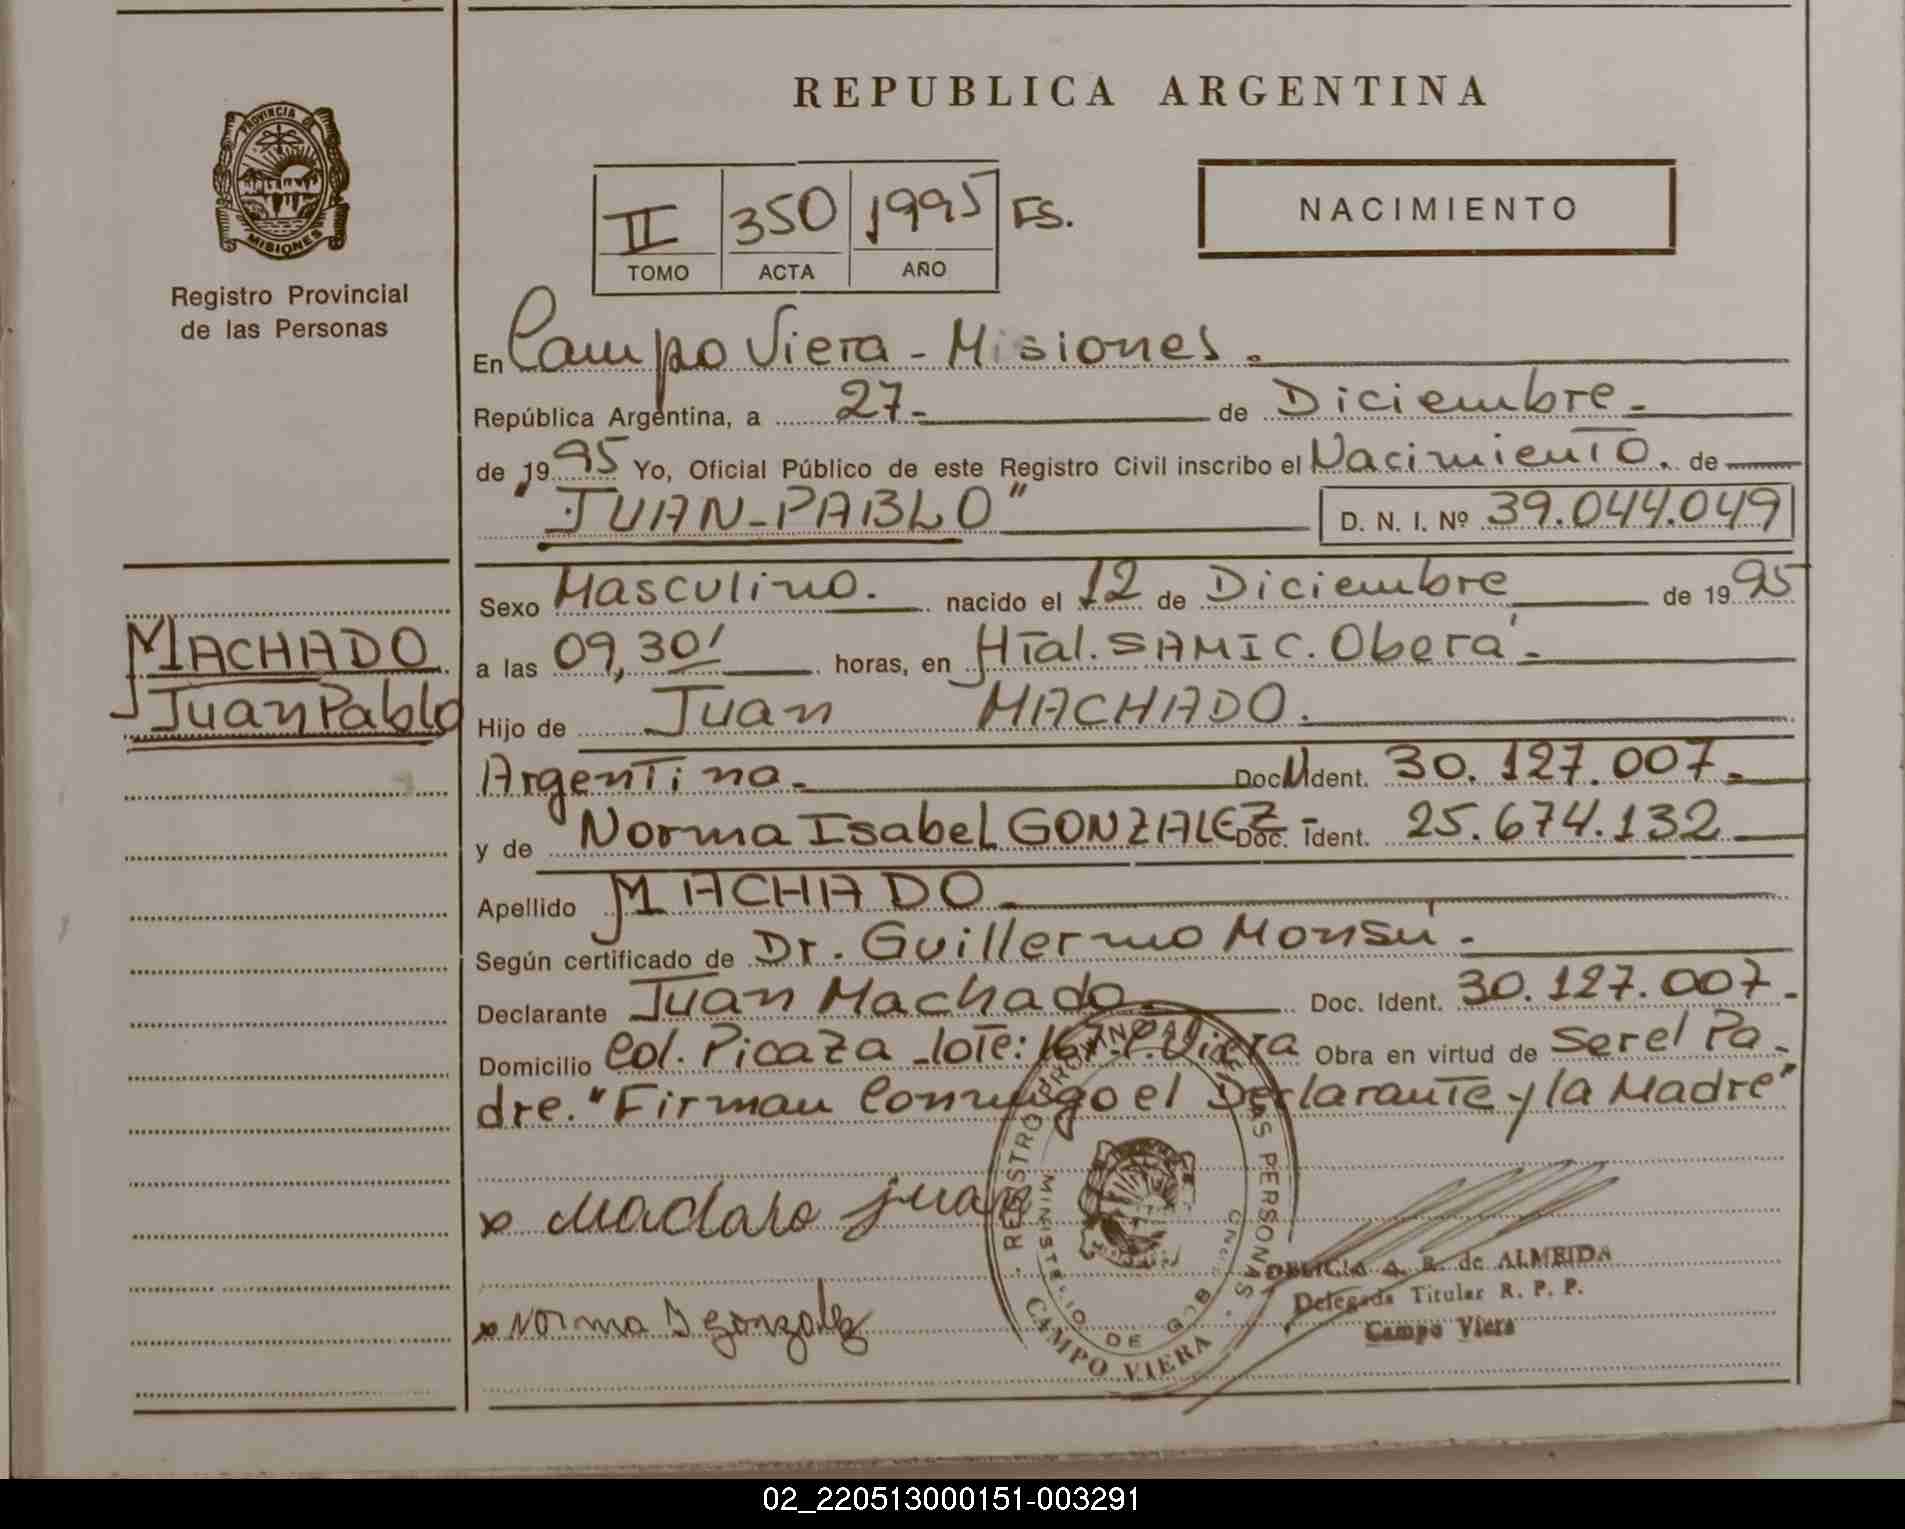 REPUBLICA ARGENTINA
PROVINCIA
MISIONES
Registro Provincial
de las Personas
II 350 1995 FS.
TOMO ACTA AÑO
NACIMIENTO
En Campo Viera - Misiones.
República Argentina, a 27- de Diciembre-
de 1995 Yo, Oficial Público de este Registro Civil inscribo el Nacimiento. de
"JUAN-PABLO" D. N. I. Nº 39.044.049
Sexo Masculino. nacido el 12 de Diciembre de 1995
MACHADO
Juan Pablo
a las 09,30' horas, en Htal. SAMIC. Oberá-
Hijo de Juan MACHADO.
Argentina- Doc. Ident. 30.127.007-
y de Norma Isabel GONZALEZ- Doc. Ident. 25.674.132
Apellido MACHADO-
Según certificado de Dr. Guillermo Monsú.
Declarante Juan Machado- Doc. Ident. 30.127.007-
Domicilio Col. Picaza-lote: Viera Obra en virtud de Ser el Pa-
dre. "Firman Conmigo el Declarante y la Madre"
x Machado Juan
x Norma I gonzalez
REGISTRO PROVINCIAL DE LAS PERSONAS
MINISTERIO DE GOB
CAMPO VIERA
DELICIA A. R. de ALMEIDA
Delegada Titular R. P. P.
Campo Viera
02_220513000151-003291